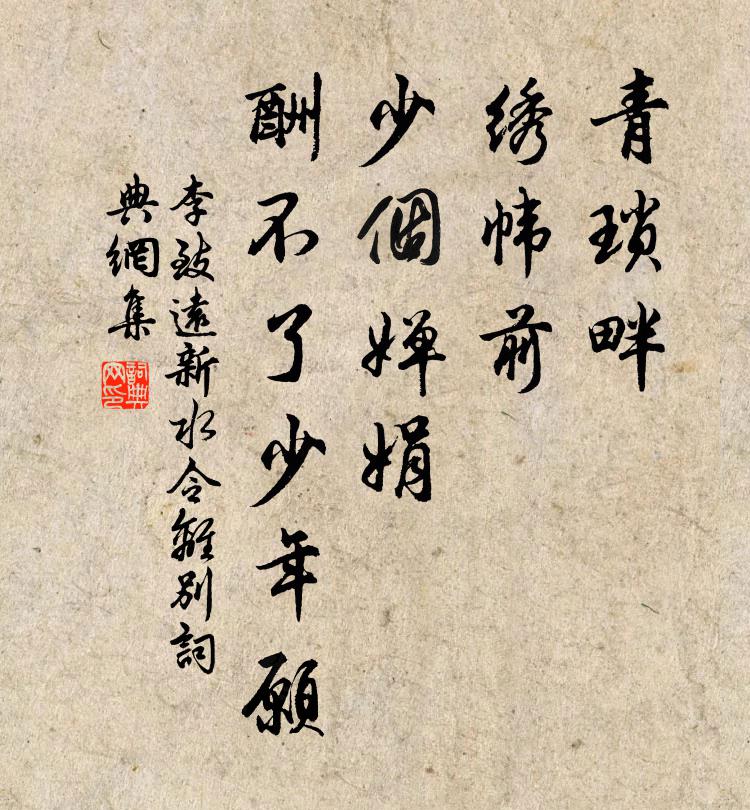 青瑣畔
绣帏前
少個嬋娟
酬不了少年願
李致遠新水令離別詞
典網集
詞典
网印